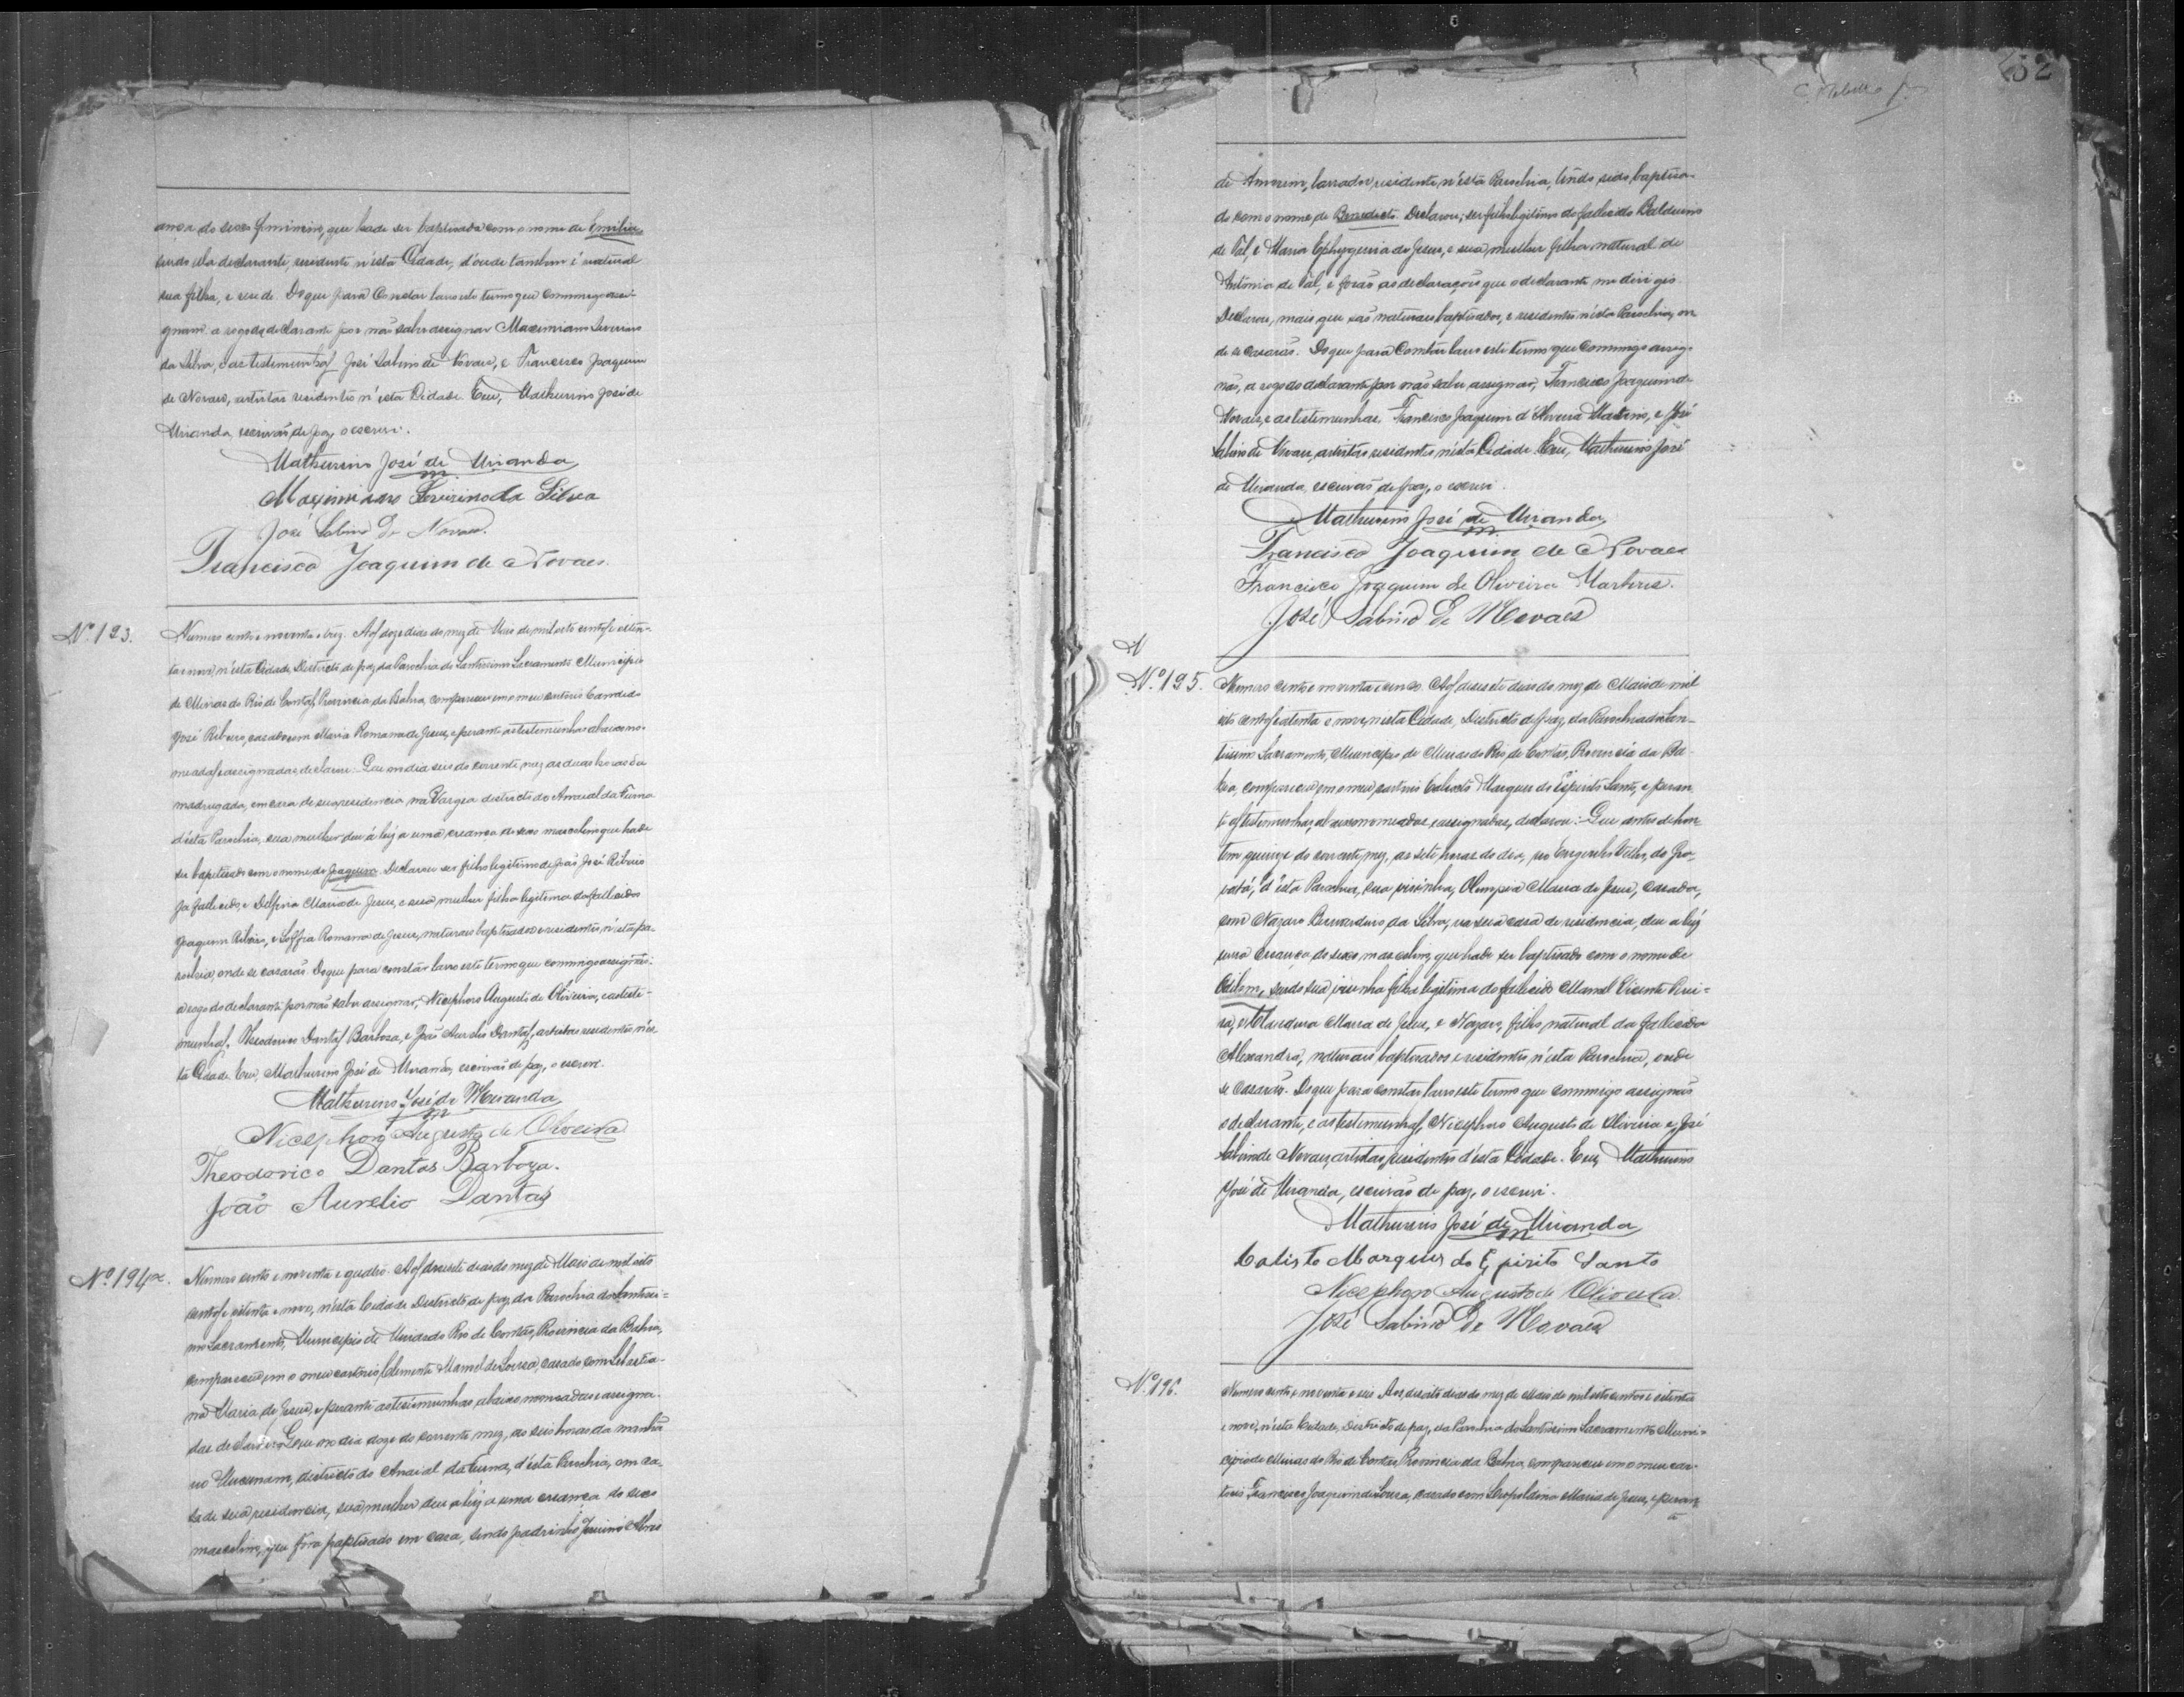 ança do sexo feminino, que hade ser baptisada com o nome de Emilia
sendo ella declarante, residente n'esta Cidade, d'onde tambem é natural
sua filha, e rede. Do que para constar lavro este termo que commigo assi-
gnam a rogo da declarante por não saber assignar Maximiano Severino
da Silva, e as testemunhas José Sabino de Novaes, e Francisco Joaquim
de Novaes, artistas residentes n'esta Cidade. Eu, Mathurino José de
Miranda, escrivão de paz, o escrevi.
Mathurino José de Miranda
Maximiano Severino da Silva
José Sabino de Novaes.
Francisco Joaquim de Novaes.
Nº 193.
Numero cento e noventa e trez. Aos doze dias do mez de Maio de mil oito centos e seten-
ta e nove, n'esta Cidade, Districto de paz da Parochia do Santissimo Sacramento Municipio
de Minas do Rio de Contas, Provincia da Bahia, compareceu em o meu cartorio Candido
José Ribeiro, casado com Maria Romana de Jesus, e perante as testemunhas abaixo no-
meadas e assignadas, declarou: Que no dia seis do corrente mez, as duas horas da
madrugada, em casa de sua residencia, na Vargea districto do Arraial da Furna
d'esta Parochia, sua mulher deu á luz a uma creança do sexo masculino que hade
ser baptisado com o nome de Joaquim. Declarou ser filho legitimo de João José Ribeiro
já fallecido, e Delfina Maria de Jesus, e sua mulher filha legitima dos fallecidos
Joaquim Ribeiro, e Soffia Romana de Jesus, naturaes baptisados e residentes n'esta Pa-
rochia, onde se casarão. Do que para constar lavro este termo que commigo assignão.
a rogo do declarante por não saber assignar, Nicephoro Augusto de Oliveira, e as teste-
munhas, Theodorico Dantas Barbosa, e João Aurelio Dantas, artistas residentes n'es-
ta Cidade. Eu, Mathurino José de Miranda, escrivão de paz, o escrevi.
Mathurino José de Miranda
Nicephoro Augusto de Oliveira
Theodorico Dantas Barboza.
João Aurelio Dantas
Nº 194.
Numero cento e noventa e quatro. Aos dezesete dias do mez de Maio de mil oito
centos e setenta e nove, n'esta Cidade Districto de paz da Parochia do Santissi-
mo Sacramento, Municipio de Minas do Rio de Contas, Provincia da Bahia,
compareceu em o meu cartorio Clemente Manoel de Souza, casado com Sebastia-
na Maria de Jesus, e perante as testemunhas abaixo nomeadas e assigna-
das declarou: Que no dia doze do corrente mez, as seis horas da manhã
no districto do Arraial da Furna, d'esta Parochia, em ca-
sa de sua residencia, sua mulher deu a luz a uma creança do sexo
masculino, que fora baptisado em casa, sendo padrinho Alves
C. Rebello
52
de Amorim, lavrador, residente n'esta Parochia, tendo sido baptisa-
do com o nome de Benedicto. Declarou; ser filho legitimo do fallecido Balduino
de Tal, e Maria Ephygenia de Jesus, e sua mulher filha natural de
Antonia de Tal, e forão as declarações que o declarante me dirigio.
Declarou, mais que são naturaes baptisados, e residentes n'esta Parochia, on
de se casarão. Do que para constar lavro este termo que commigo assig-
não, a rogo do declarante por não saber assignar, Francisco Joaquim de
Novaes, e as testemunhas, Francisco Joaquim d'Oliveira Martins, e José
Sabino de Novaes, artistas residentes n'esta Cidade. Eu, Mathurino José
de Miranda, escrivão de paz, o escrevi.
Mathurino José de Miranda
Francisco Joaquim de Novaes
Francisco Joaquim de Oliveira Martins.
José Sabino de Novaes
N
Nº 195.
Numero cento e noventa e cinco. Aos dezesete dias do mez de Maio de mil
oito centos e setenta e nove, n'esta Cidade, Districto de paz, da Parochia do San-
tissimo Sacramento, Municipio de Minas do Rio de Contas, Provincia da Ba-
hia, compareceu em o meu cartorio Calisto Marques do Espirito Santo, e peran-
te as testemunhas, abaixo nomeadas, e assignadas, declarou: Que antes de hon-
tem quinze do corrente, mez, as sete horas do dia, no Engenho Velho, do
d'esta Parochia, sua visinha, Olimpia Maria de Jesus, casada,
com Nazaro Bernardino da Silva, na sua casa de residencia, deu a luz
uma creança do sexo masculino, que hade ser baptisado com o nome de
sendo sua visinha filha legitima do fallecido Manoel Vicente Perei-
ra, e Maria de Jesus, e Nazaro, filho natural da fallecida
Alexandra, naturaes baptisados e residentes n'esta Parochia, onde
se casarão. Do que para constar lavro este termo que commigo assignão
o declarante, e as testemunhas, Nicephoro Augusto de Oliveira e José
Sabino de Novaes, artistas, residentes d'esta Cidade. Eu, Mathurino
José de Miranda, escrivão de paz, o escrevi.
Mathurino José de Miranda
Calisto Marques do Espirito Santo
Nicephoro Augusto de Oliveira
José Sabino de Novaes
Nº 196.
Numero cento e noventa e seis. Aos dezoito dias do mez de Maio de mil oito centos e setenta
e nove, n'esta Cidade, Districto de paz, da Parochia do Santissimo Sacramento Muni-
cipio de Minas do Rio de Contas, Provincia da Bahia, compareceu em o meu car-
torio Francisco Joaquim de Souza, casado com Leopoldina Maria de Jesus, e peran
te